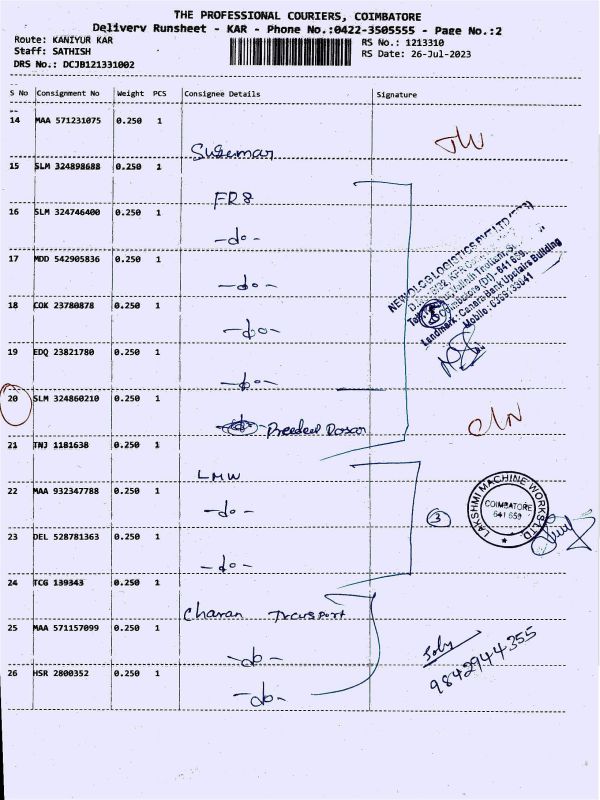 THE PROFESSIONAL COURIERS, COIMBATORE
Delivery Runsheet - KAR - Phone No.:0422-3505555 - Page No.:2
Route: KANIYUR KAR
RS No.: 1213310
Staff: SATHISH
RS Date: 26-Jul-2023
DRS No.: DCJB121331002
S No Consignment No Weight PCS Consignee Details Signature
14 MAA 571231075 0.250 1
15 SLM 324898688 0.250 1
FR8
16 SLM 324746400 0.250 1
-do-
17 MDD 542905836 0.250 1
-do-
18 COK 23780878 0.250 1
-do-
19 EDQ 23821780 0.250 1
-do-
20 SLM 324860210 0.250 1
21 TNJ 1181638 0.250 1
LMW
22 MAA 932347788 0.250 1
-do-
23 DEL 528781363 0.250 1
-do-
24 TCG 139343 0.250 1
Charan Transport
25 MAA 571157099 0.250 1
-do-
26 HSR 2800352 0.250 1
-do-
Coimbatore (Dt) - 641 659
Landmark: Canara Bank Upstairs Building
3
LAKSHMI MACHINE WORKS LTD.
COIMBATORE
641 659
9842944355